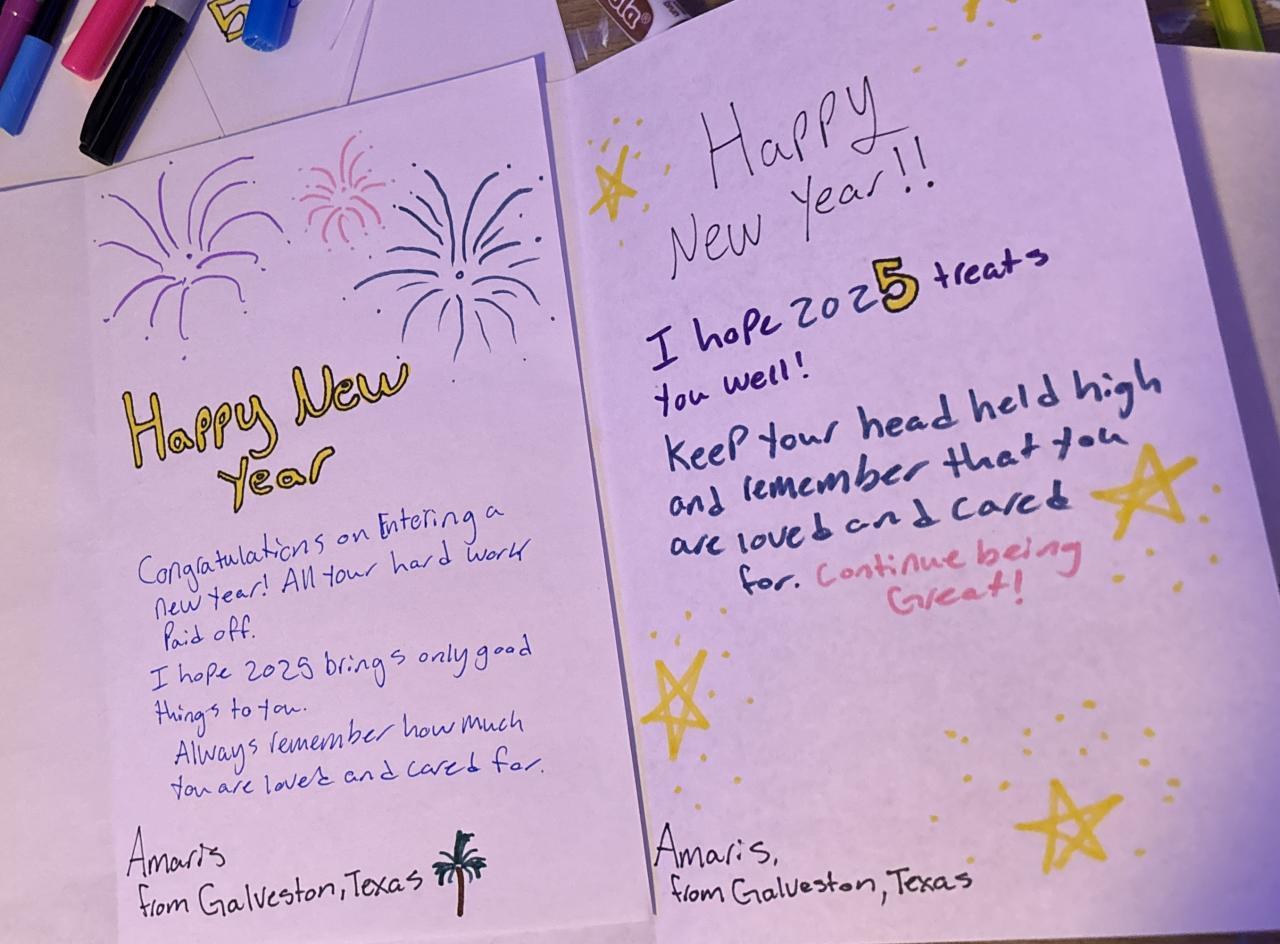 Happy New
Year
Congratulations on Entering a
new Year! All Your hard work
Paid off.
I hope 2025 brings only good
things to you.
Always remember how much
You are loved and cared for.
Amaris
from Galveston, Texas
Happy
New Year!!
I hope 2025 treats
You well!
Keep Your head held high
and remember that you
are loved and cared
for. Continue being
Great!
Amaris,
from Galveston, Texas
5